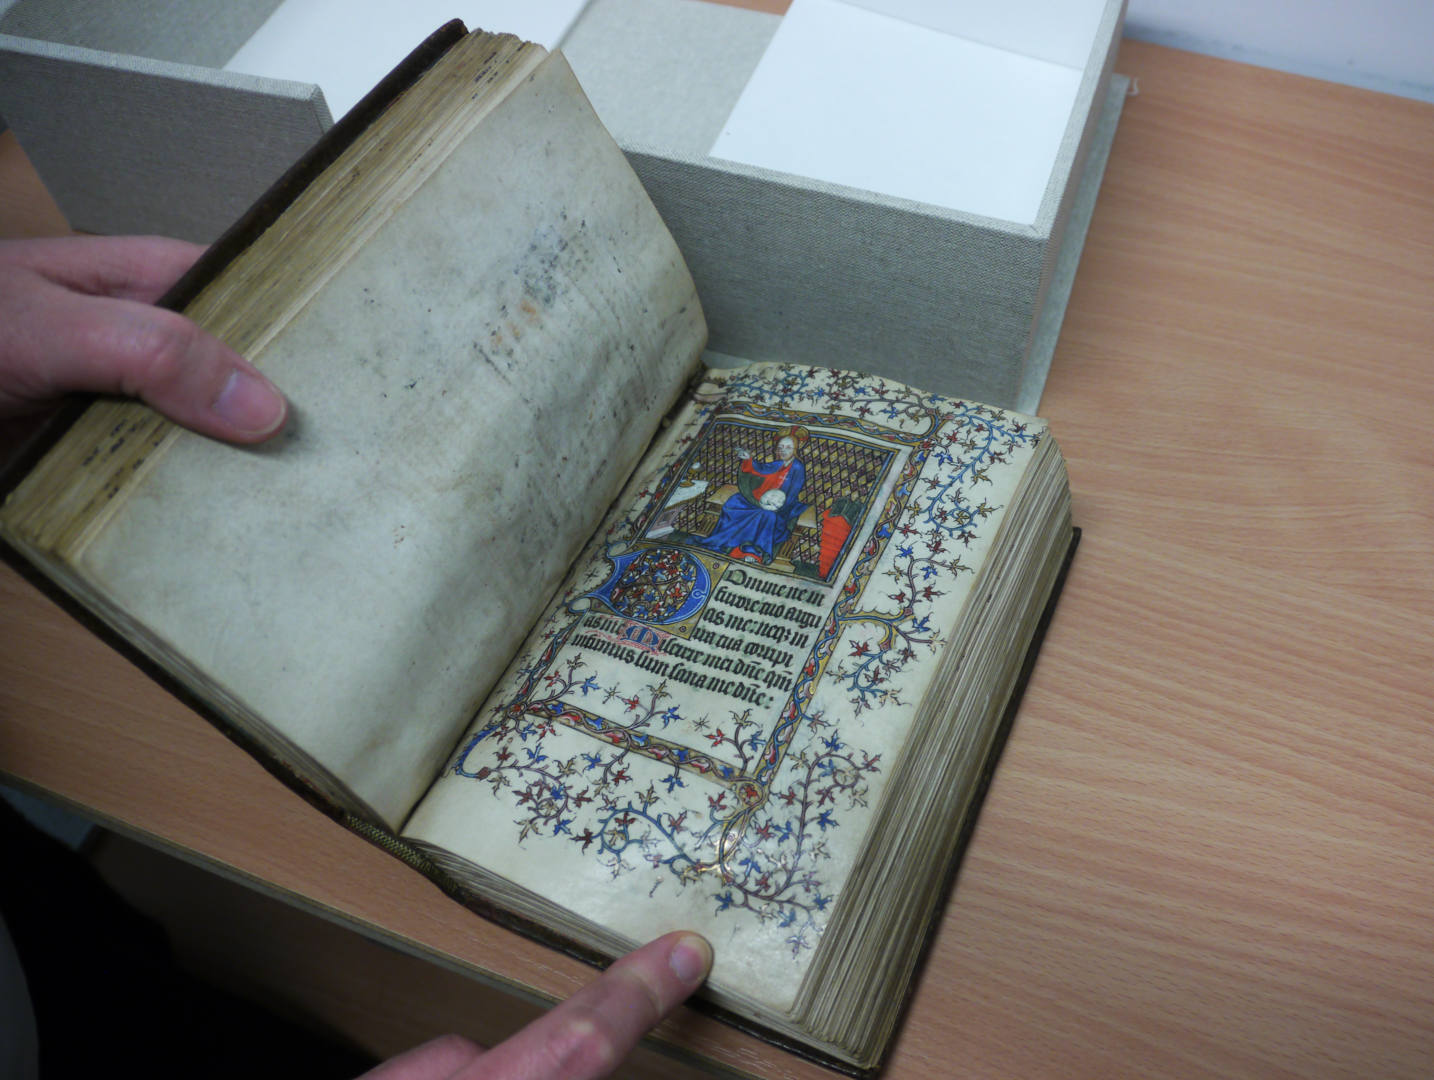 Domine ne in
furore tuo argu
as me: neqz in
ira tua corripi
as me Miserere mei dñe qm̃
infirmus sum sana me dñe: